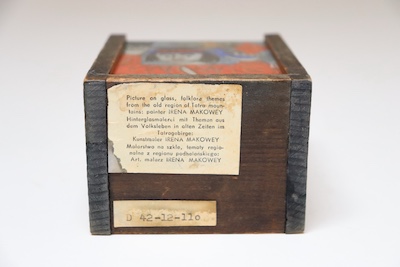 Picture on glass, folklore themes
from the old region of Tatra moun-
tains: painter IRENA MAKOWEY
Hinterglasmalerei mit Themen aus
dem Volksleben in alten Zeiten im
Tatragebirge:
Kunstmaler IRENA MAKOWEY
Malarstwo na szkle, tematy regio-
nalne z regionu podhalańskiego:
Art. malarz IRENA MAKOWEY
D 42-12-110